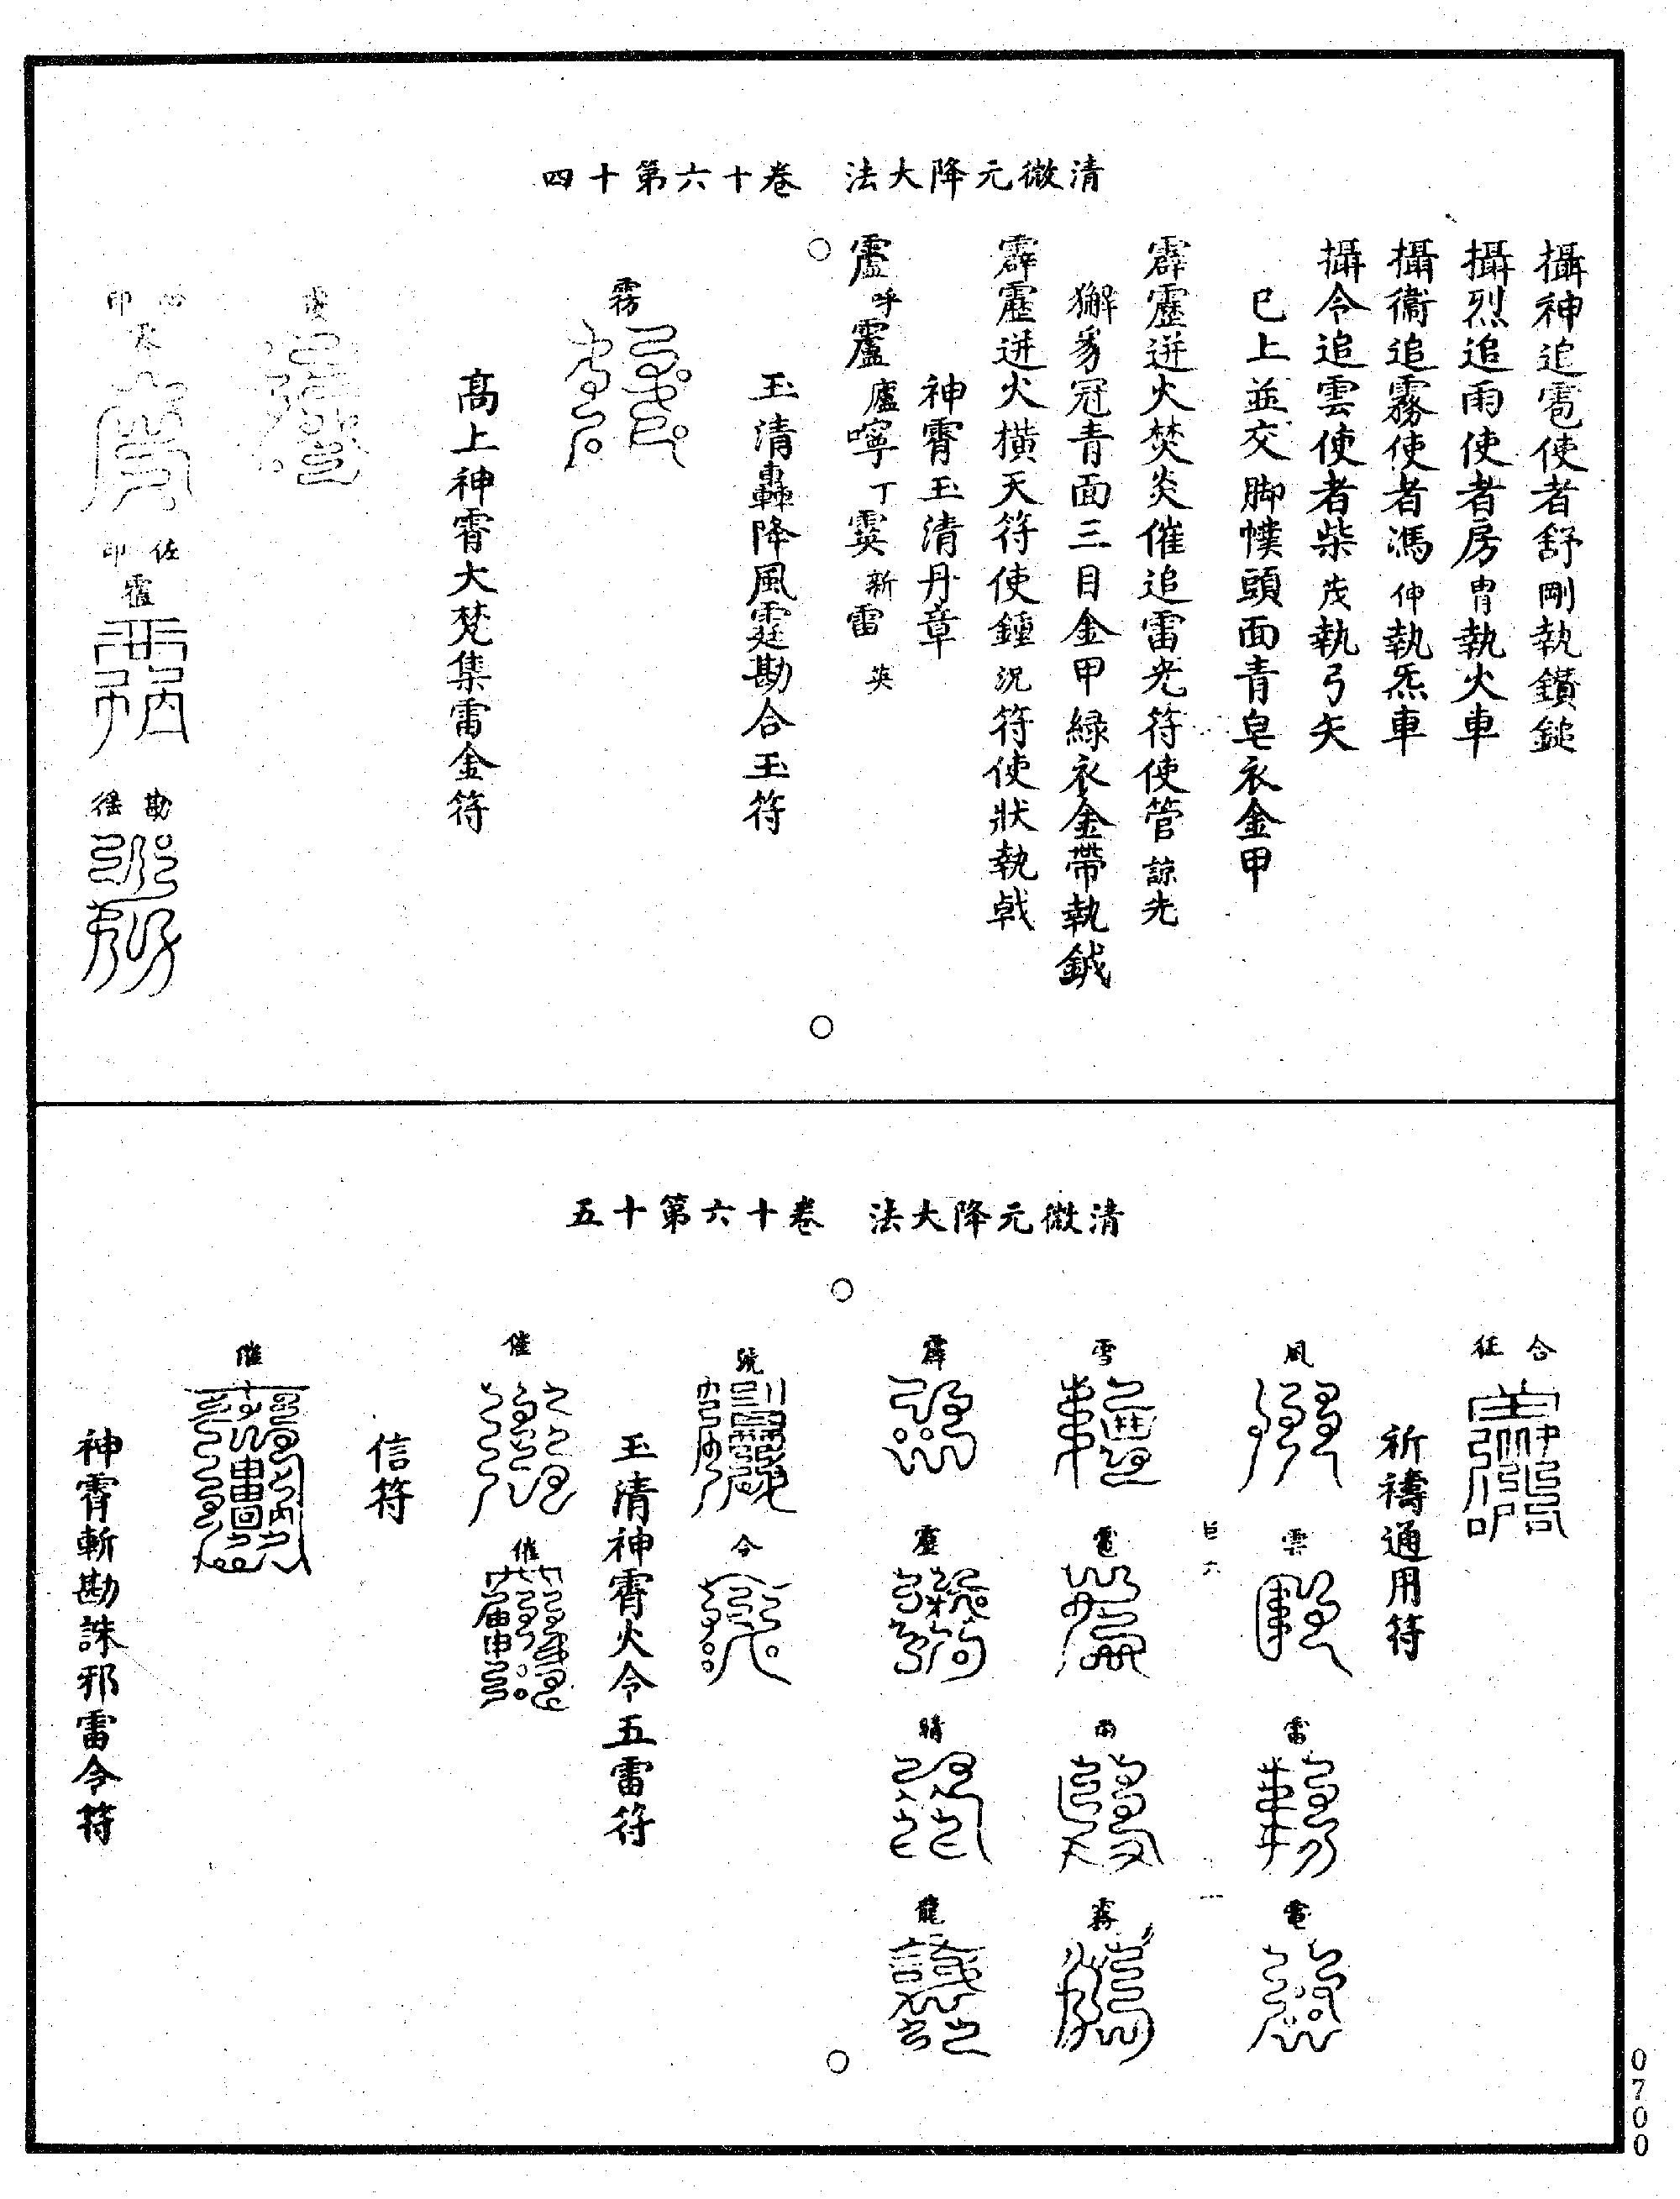 清微元降大法　卷十六第十四
攝神追雹使者舒剛執鑚鎚
攝烈追雨使者房胄執火車
攝衞追霧使者馮仲執炁車
攝令追雲使者柴茂執弓矢
已上並交脚幞頭面青皂衣金甲
霹靂迸火焚炎催追雷光符使管諒先
獬豸冠青面三目金甲緑衣金帶執鉞
霹靂迸火横天符使鍾況符使狀執戟
神霄玉清丹章
呼 廬嚀丁霙新雷英
玉清轟降風霆勘合玉符
霧
高上神霄大梵集雷金符
印
佐印
勘
清微元降大法　卷十六第十五
合征
祈禱通用符
風 雲 雷 電
巨六
雪 雹 雨 霧
霹 靂 晴 龍
號 令
玉清神霄火令五雷符
催 催
信符
催
神霄斬勘誅邪雷令符
0700